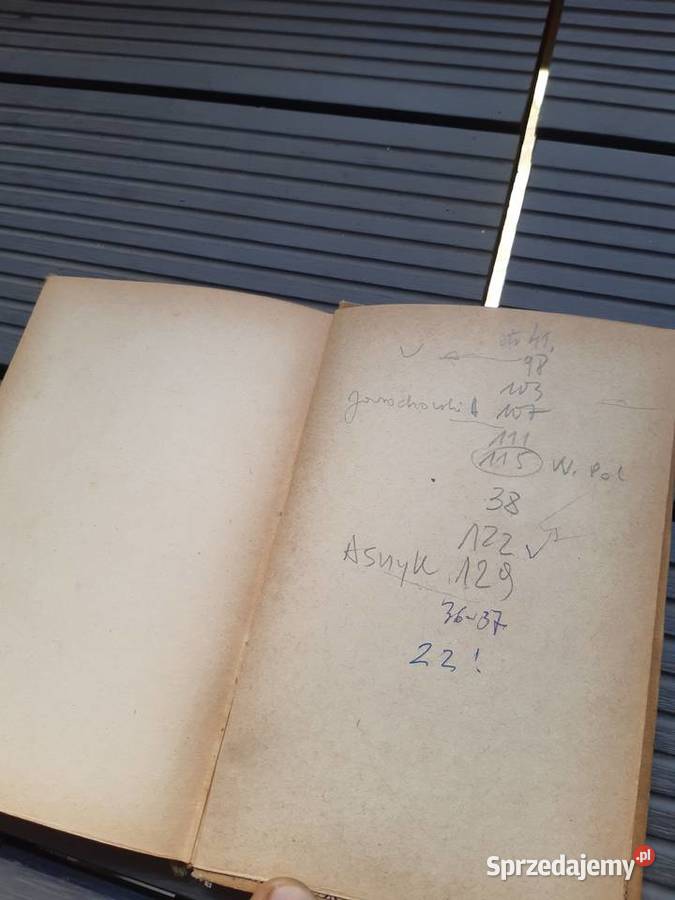 str 41.
98
103
107
111
115 W. Pol
38
122
Asnyk 129
36-37
22!
Sprzedajemy.pl